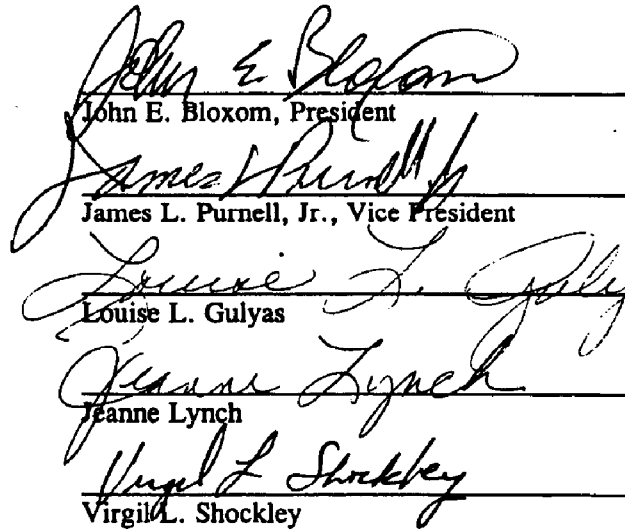 John E. Bloxom
John E. Bloxom, President
James L Purnell Jr
James L. Purnell, Jr., Vice President
Louise L. Guly
Louise L. Gulyas
Jeanne Lynch
Jeanne Lynch
Virgil L Shockley
Virgil L. Shockley